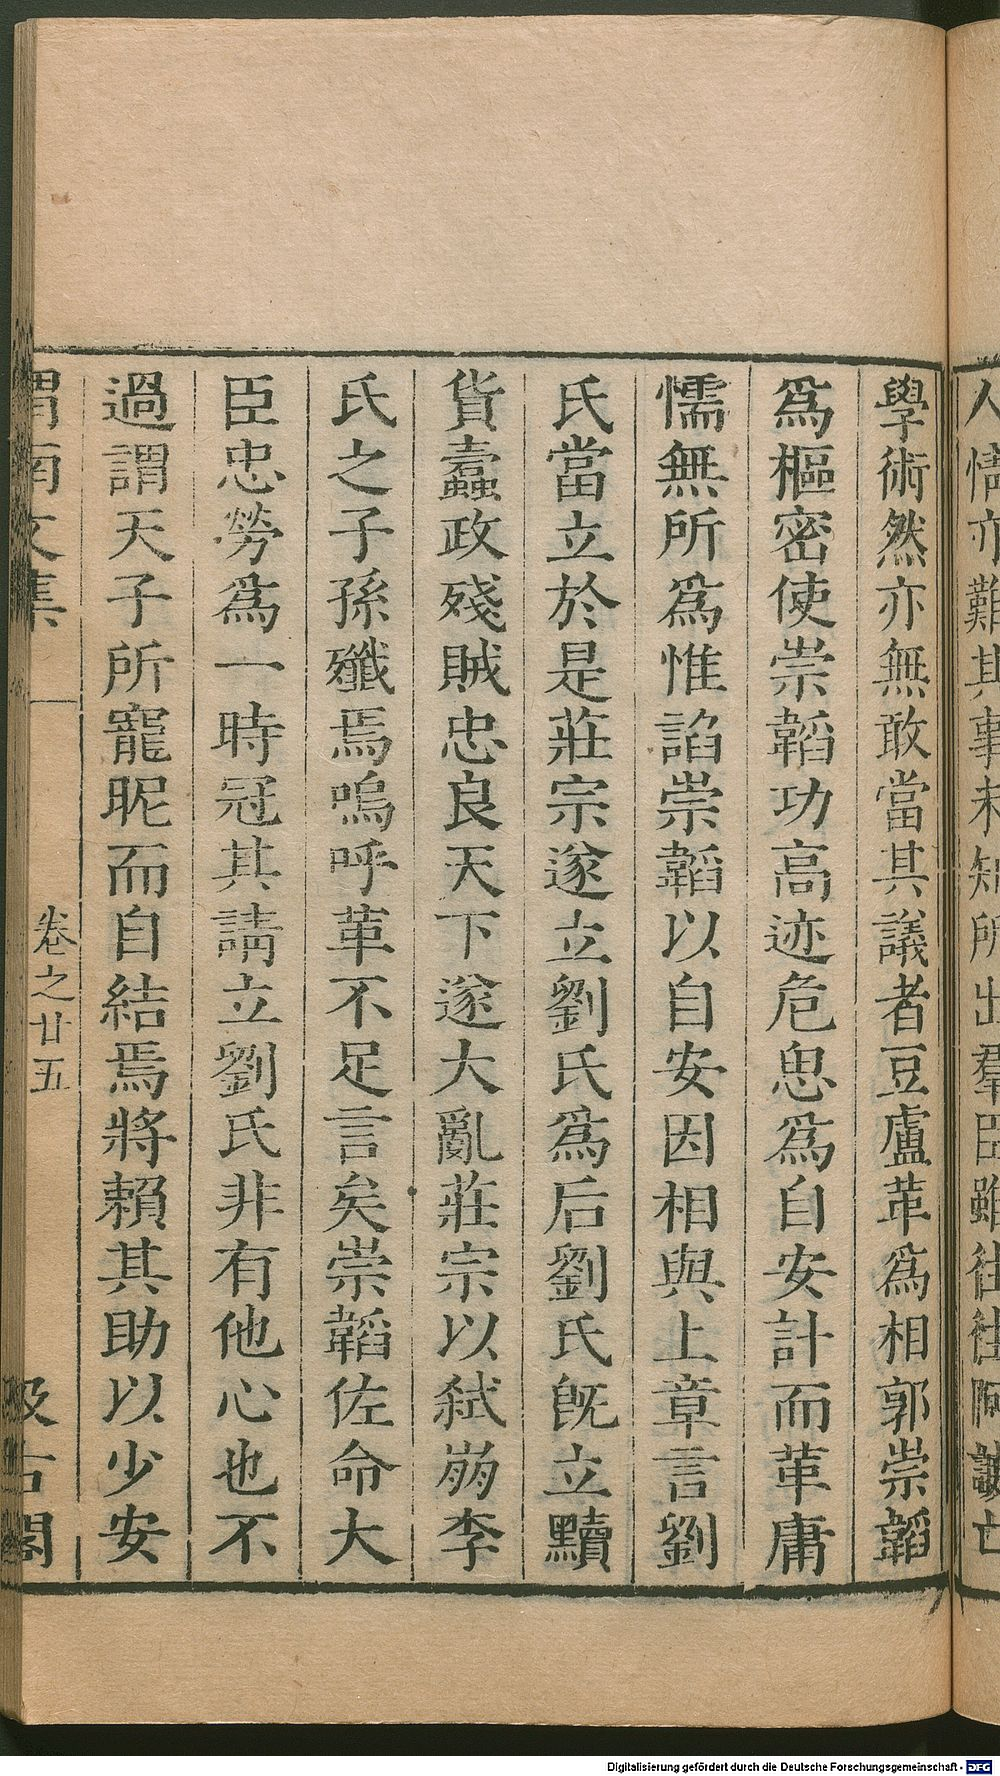 人情亦難其事未知所出羣臣雖往往阿諛亡
學術然亦無敢當其議者豆盧革爲相郭崇韜
爲樞密使崇韜功高迹危思爲自安計而革庸
懦無所爲惟諂崇韜以自安因相與上章言劉
氏當立於是莊宗遂立劉氏爲后劉氏旣立黷
貨蠹政殘賊忠良天下遂大亂莊宗以弑崩李
氏之子孫殲焉嗚呼革不足言矣崇韜佐命大
臣忠勞爲一時冠其請立劉氏非有他心也不
過謂天子所寵昵而自結焉將賴其助以少安
渭南文集 卷之廿五 汲古閣
Digitalisierung gefördert durch die Deutsche Forschungsgemeinschaft - DFG